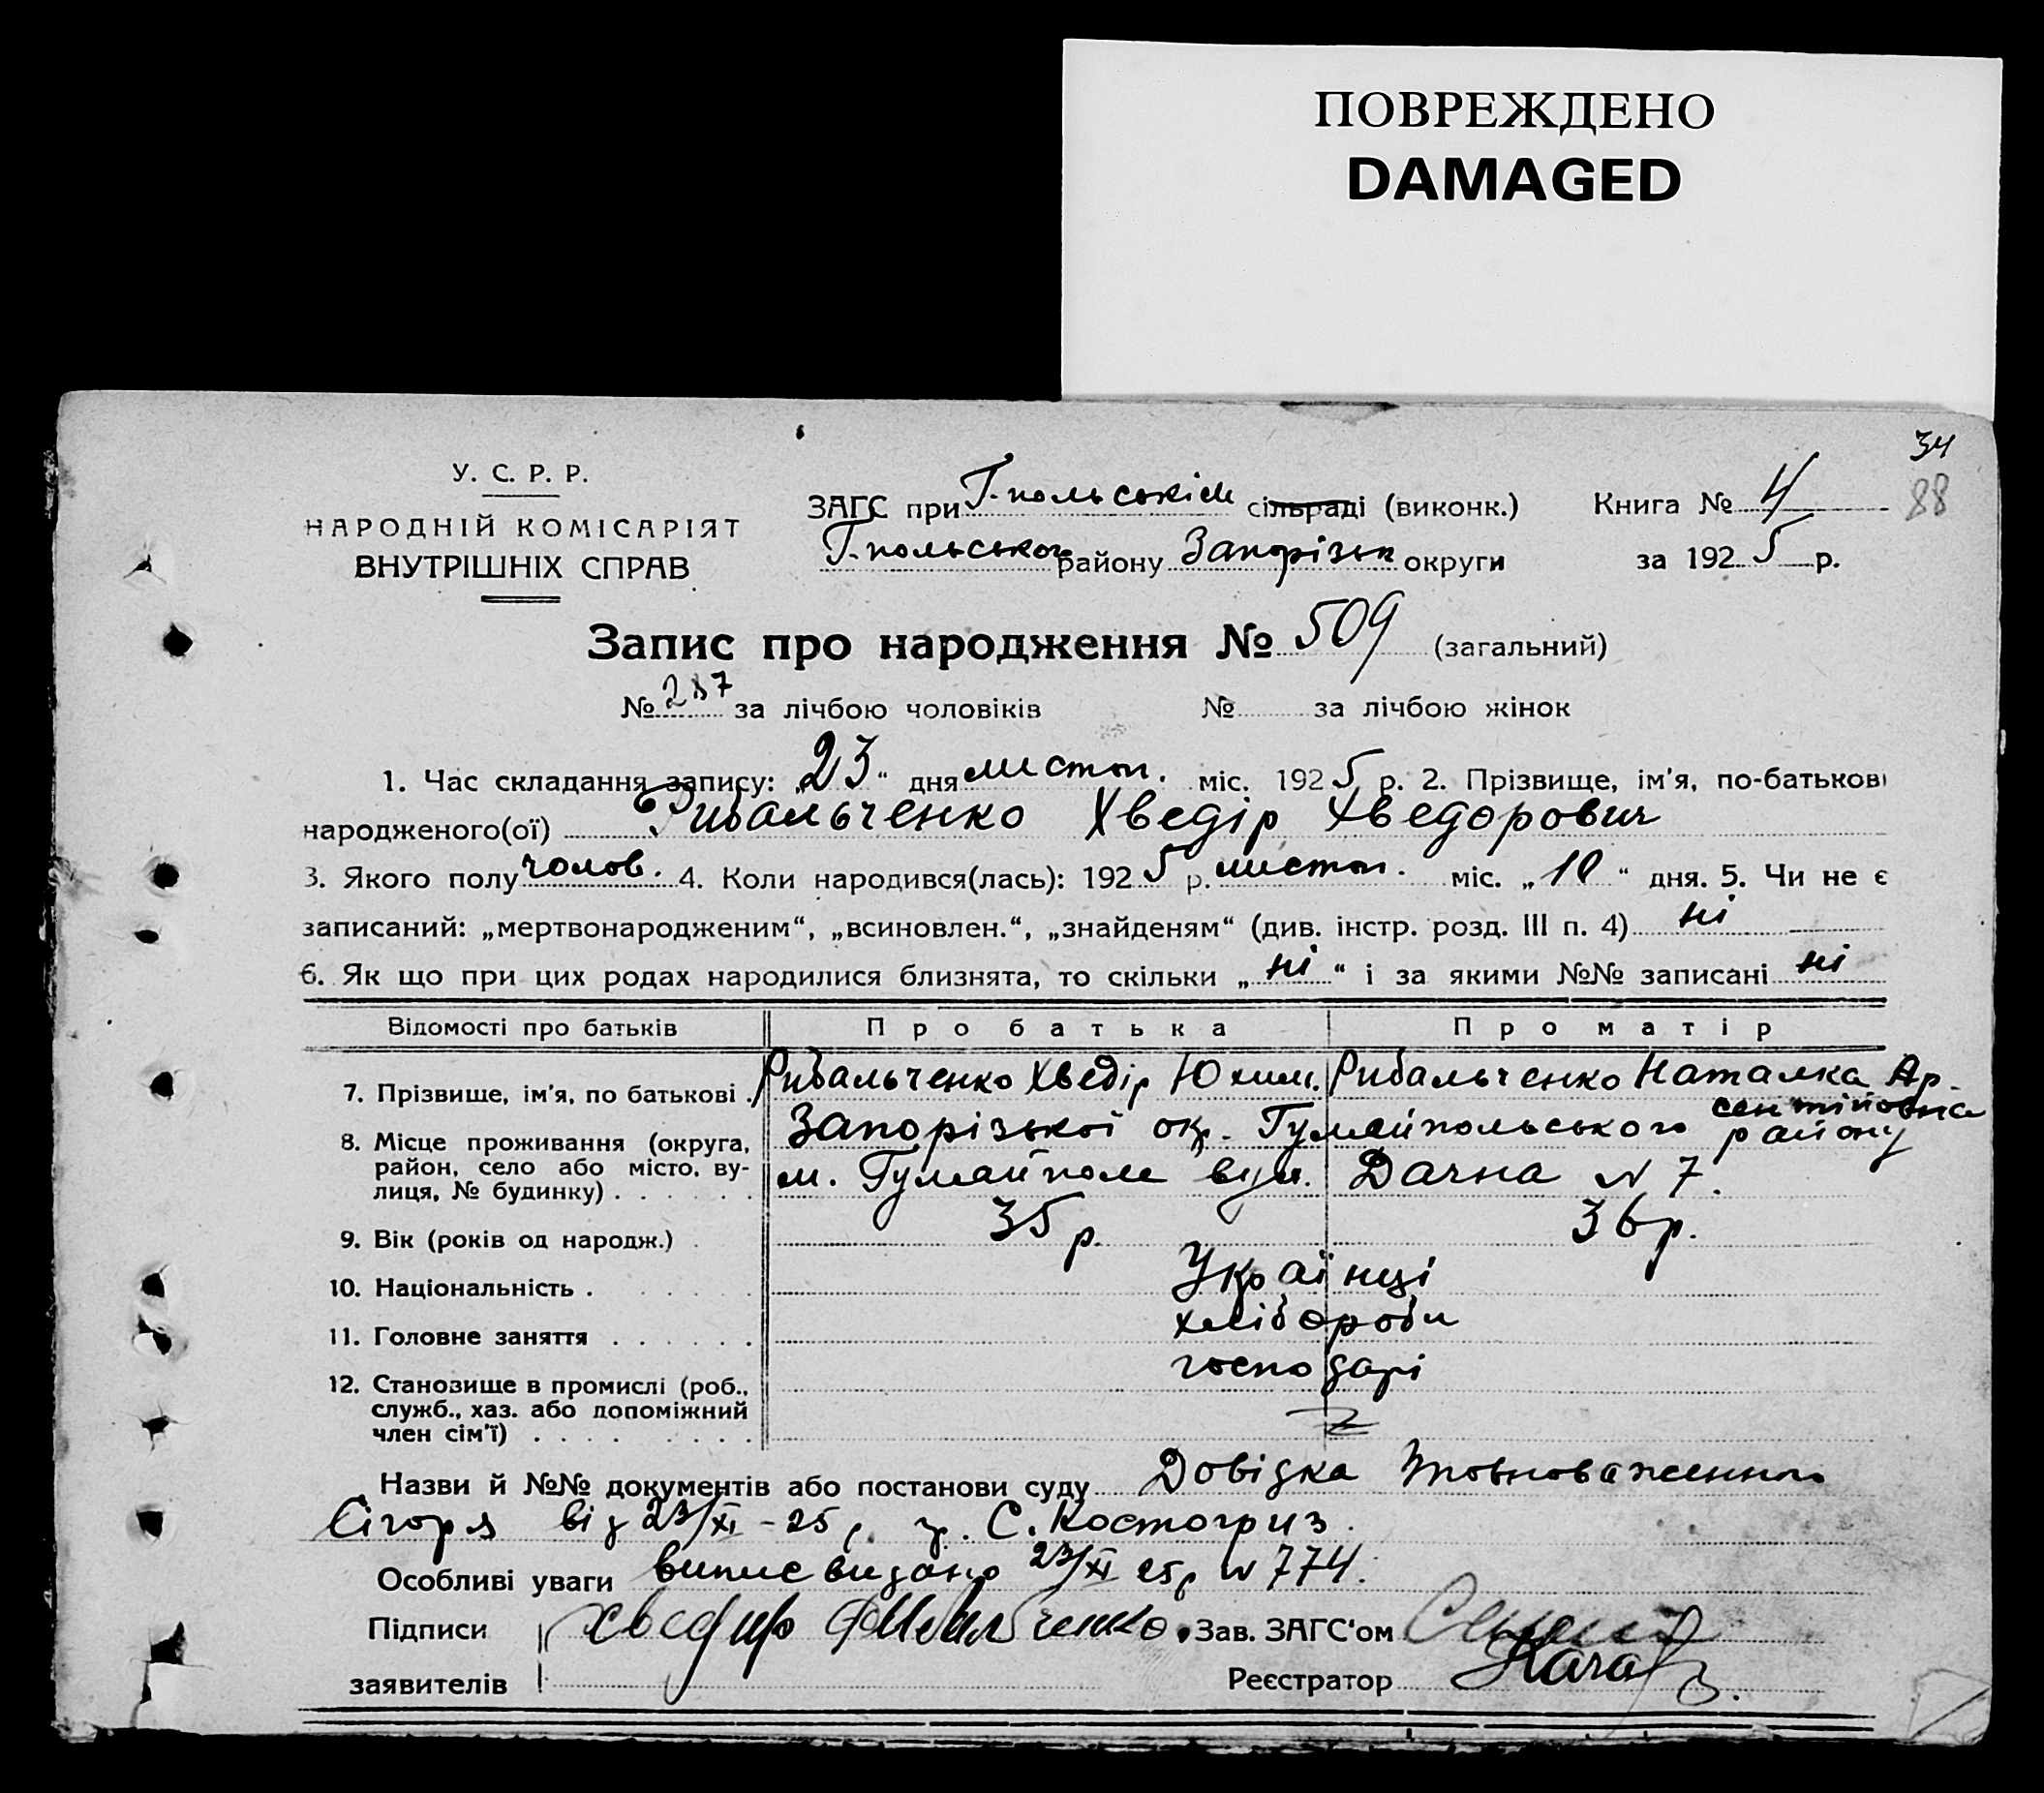 ПОВРЕЖДЕНО
DAMAGED
34
88
У. С. Р. Р.
НАРОДНІЙ КОМІСАРІЯТ
ВНУТРІШНІХ СПРАВ
ЗАГС при Г-польськім сільраді (виконк.) Книга № 4
Г-польського району Запорізьк округи за 1925 р.
Запис про народження № 509 (загальний)
№ 287 за лічбою чоловіків № за лічбою жінок
1. Час складання запису: „23“ дня листоп. міс. 1925 р. 2. Прізвище, ім'я, по-батькові
народженого(ої) Рибальченко Хведір Хведорович
3. Якого полу чолов. 4. Коли народився(лась): 1925 р. листоп. міс. „18“ дня. 5. Чи не є
записаний: „мертвонародженим“, „всиновлен.“, „знайденям“ (див. інстр. розд. III п. 4) ні
6. Як що при цих родах народилися близнята, то скільки „ні“ і за якими №№ записані ні
Відомості про батьків Про батька Про матір
7. Прізвище, ім'я, по батькові . Рибальченко Хведір Юхим. Рибальченко Наталка Ар-
сентіївна
8. Місце проживання (округа, Запорізької окр. Гуляйпольського району
район, село або місто, ву-
лиця, № будинку) . . . . . . м. Гуляйполе вул. Дачна № 7.
9. Вік (років од народж.) . 35 р. 36 р.
10. Національність . . . . . . Українці
11. Головне заняття . . . . . . хлібороби
12. Становище в промислі (роб., господарі
служб., хаз. або допоміжний
член сім'ї) . . . . . . . .
Назви й №№ документів або постанови суду Довідка Уповноваженного
від 23/XI-25 р. С. Костогриз.
Особливі уваги випис видано 23/XI 25 р № 774.
Підписи Хведир Зав. ЗАГС'ом
заявителів Реєстратор